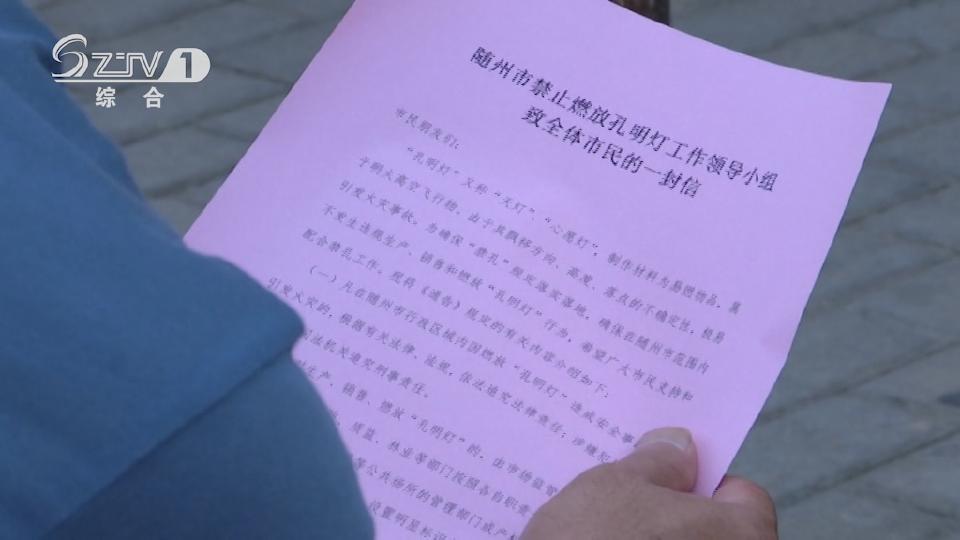 SZTV1
综合
随州市禁止燃放孔明灯工作领导小组
致全体市民的一封信
市民朋友们：
“孔明灯”又称“天灯”、“心愿灯”，制作材料为易燃物品，属
于明火高空飞行物，由于其飘移方向、高度、落点的不确定性，极易
引发火灾事故。为确保“禁孔”规定落实落地，确保在随州市范围内
不发生违规生产、销售和燃放“孔明灯”行为，希望广大市民支持和
配合禁孔工作。现将《通告》规定的有关内容介绍如下：
（一）凡在随州市行政区域内因燃放“孔明灯”造成安全事
引发火灾的，根据有关法律、法规，依法追究法律责任；涉嫌犯
司法机关追究刑事责任。
生产、销售、燃放“孔明灯”的，由市场监管
、质监、林业等部门按照各自职责
等公共场所的管理部门或产权
设置明显标识